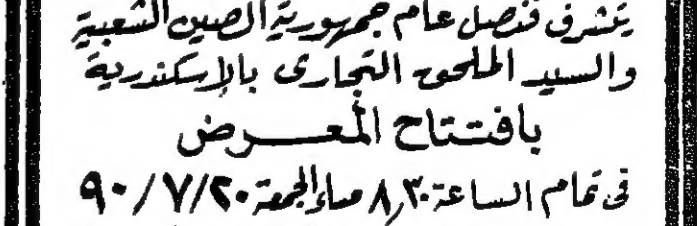 يتشرف قنصل عام جمهورية الصين الشعبية
والسيد الملحق التجارى بالإسكندرية
بافتتاح المعرض
فى تمام الساعة ٨,٣٠ مساء الجمعة ٩٠/٧/٢٠